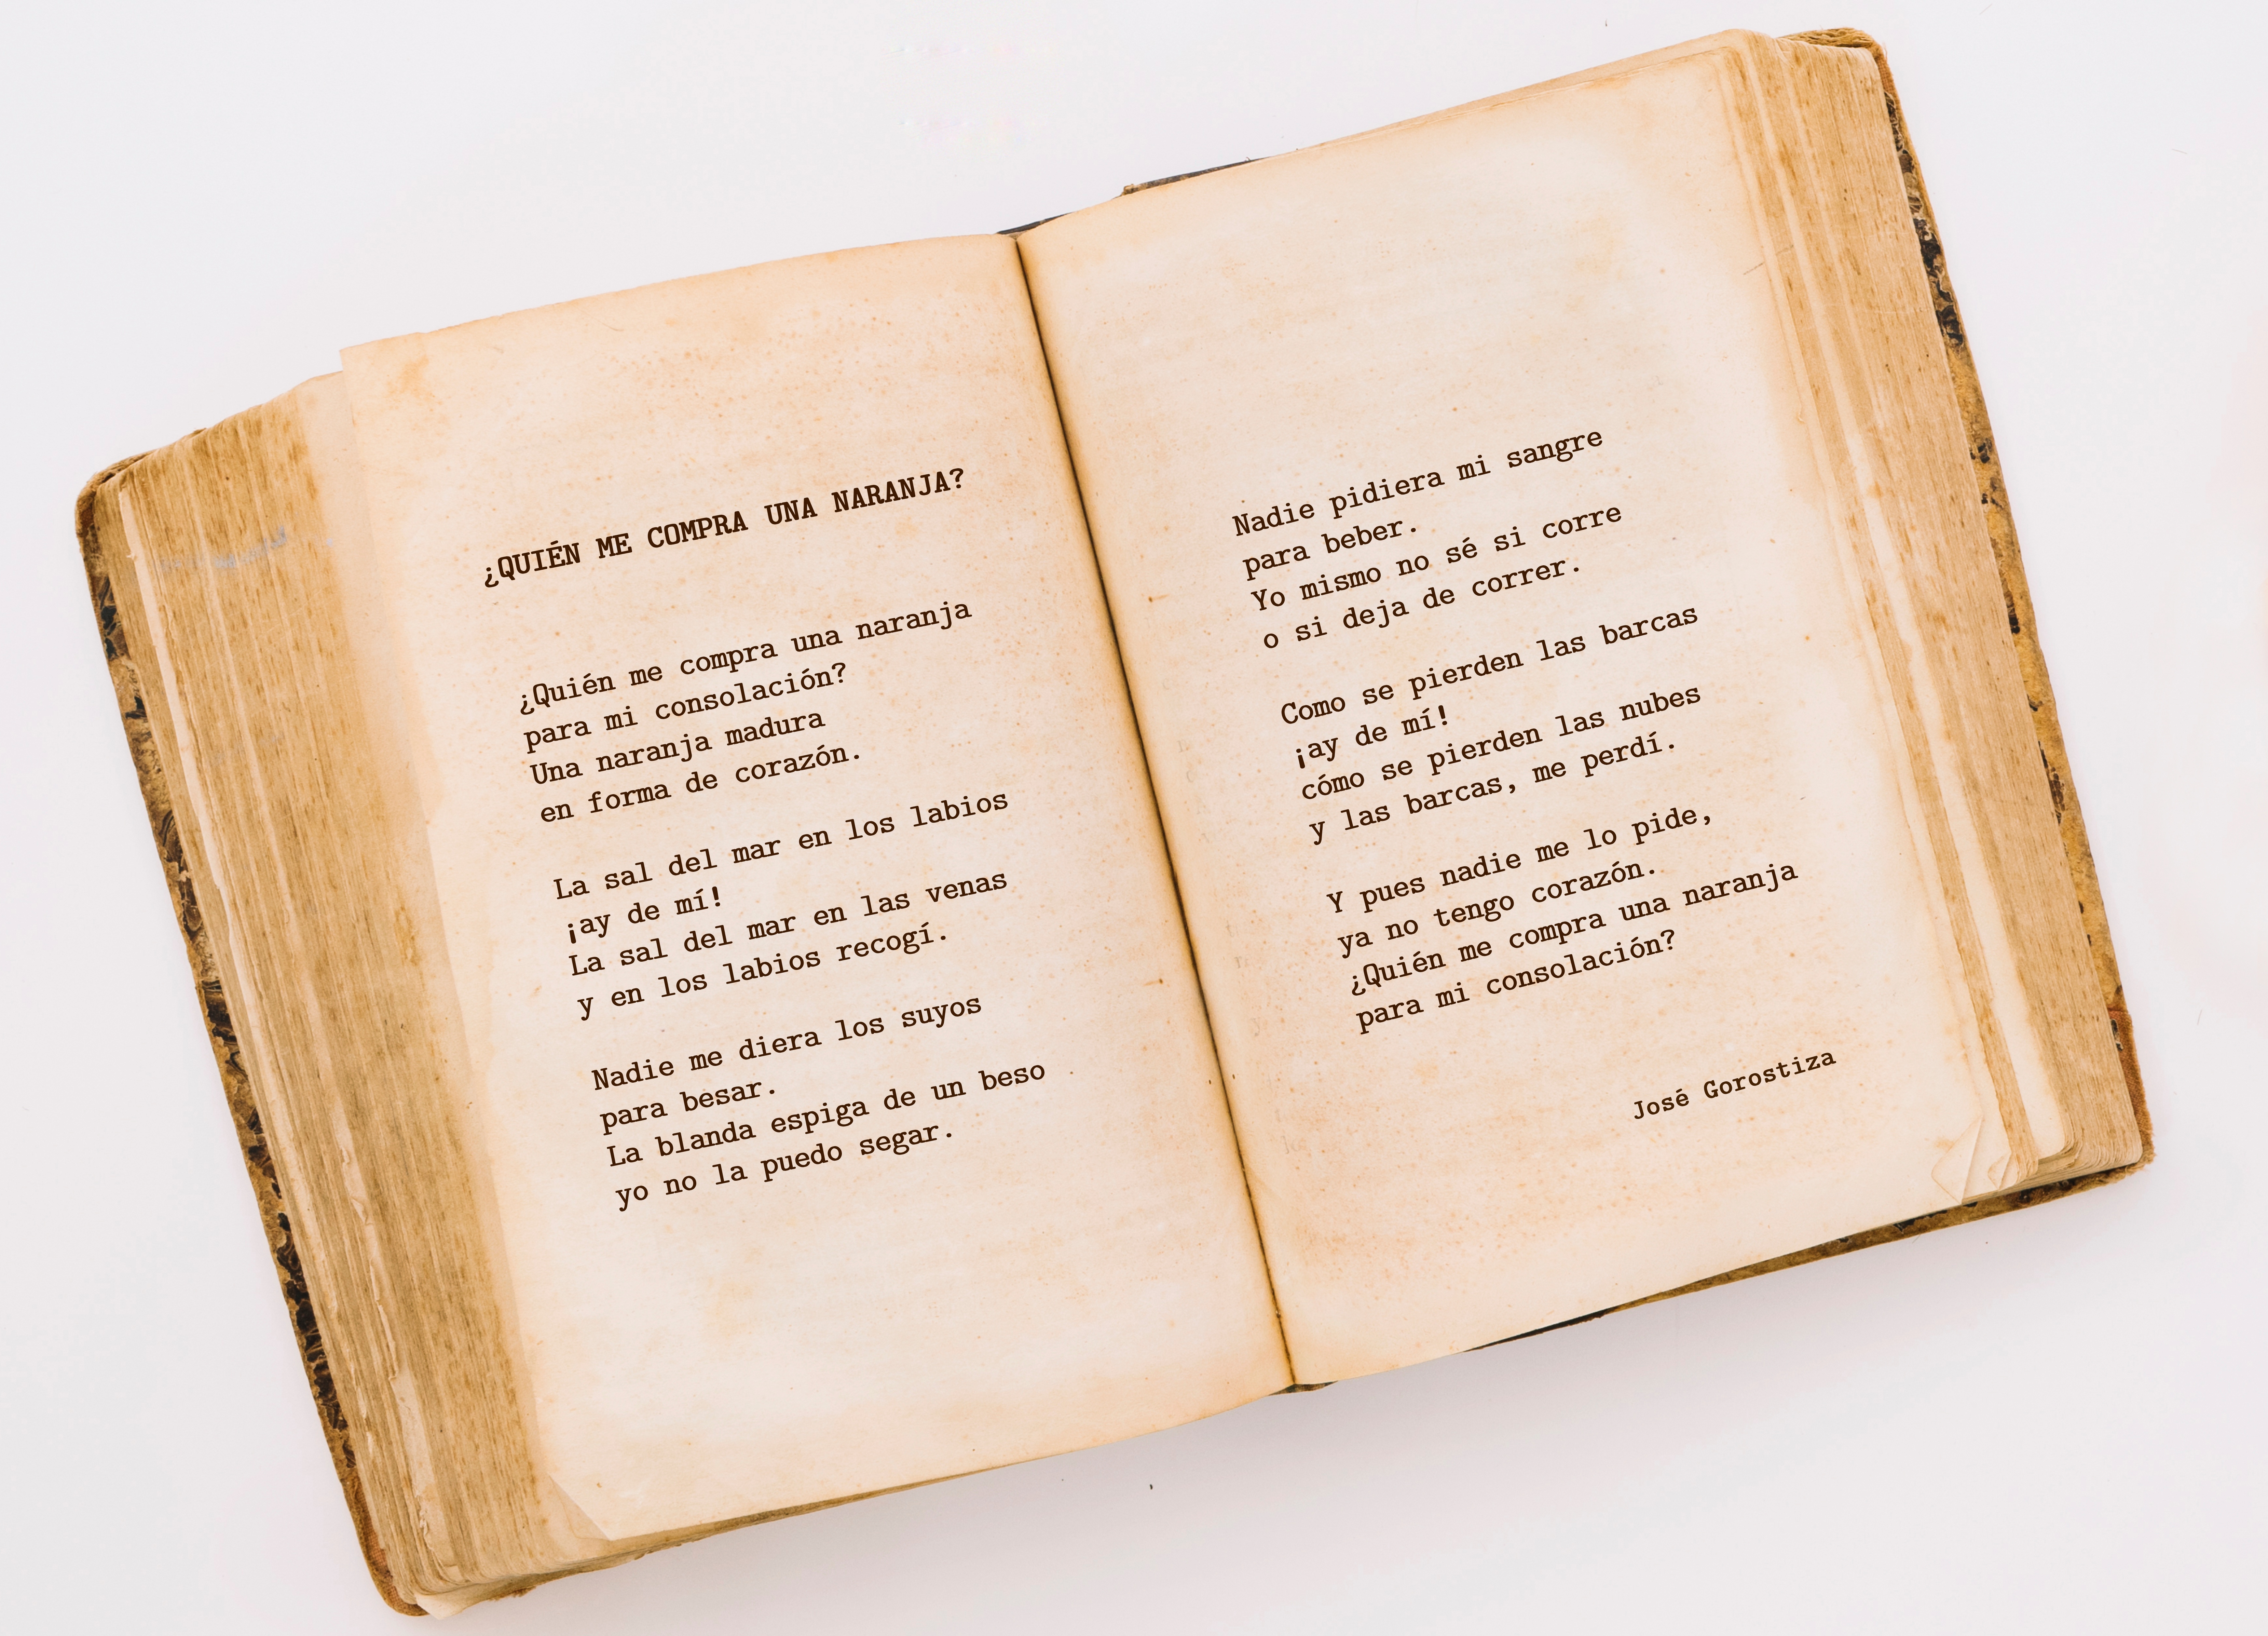 ¿QUIÉN ME COMPRA UNA NARANJA?
¿Quién me compra una naranja
para mi consolación?
Una naranja madura
en forma de corazón.
La sal del mar en los labios
¡ay de mí!
La sal del mar en las venas
y en los labios recogí.
Nadie me diera los suyos
para besar.
La blanda espiga de un beso
yo no la puedo segar.
Nadie pidiera mi sangre
para beber.
Yo mismo no sé si corre
o si deja de correr.
Como se pierden las barcas
¡ay de mí!
cómo se pierden las nubes
y las barcas, me perdí.
Y pues nadie me lo pide,
ya no tengo corazón.
¿Quién me compra una naranja
para mi consolación?
José Gorostiza